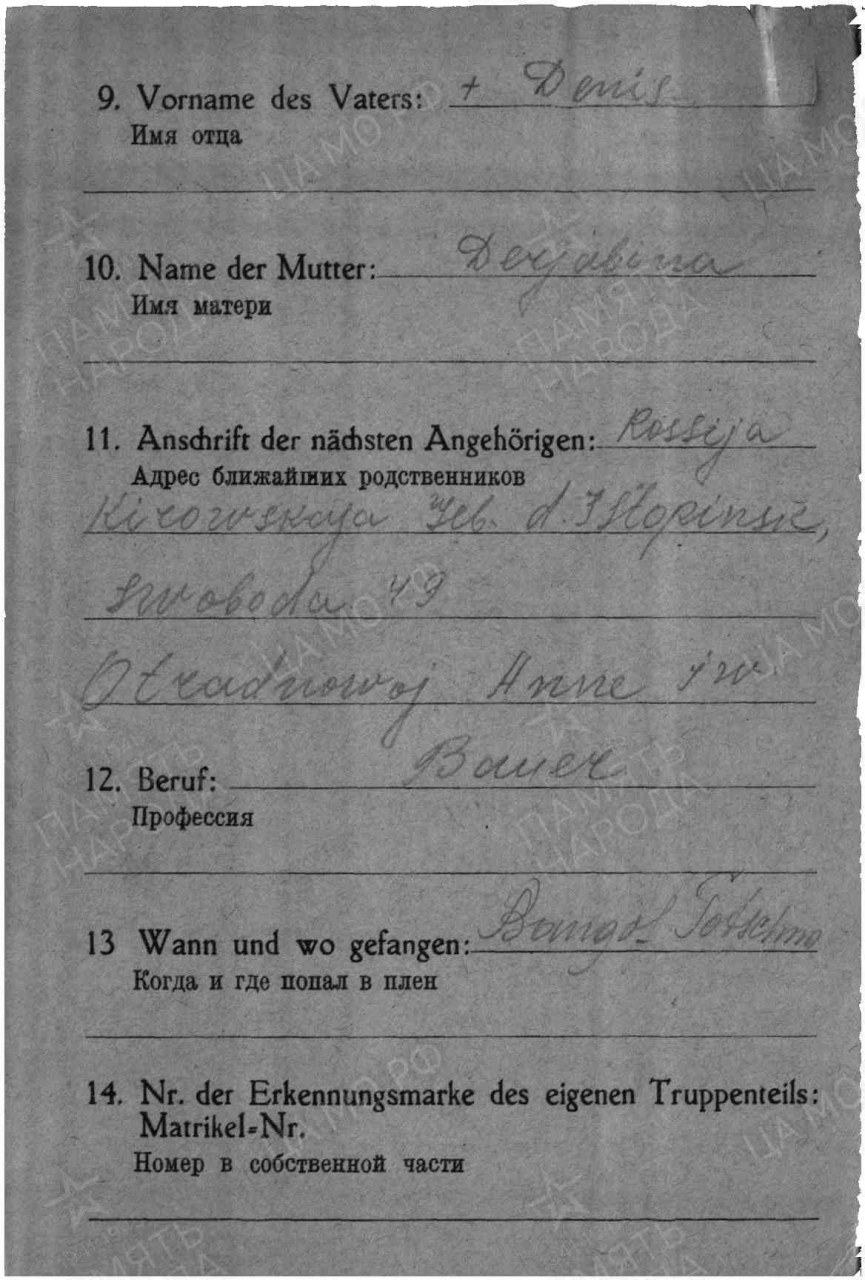 9. Vorname des Vaters: + Denis
Имя отца
10. Name der Mutter: Derjabina
Имя матери
11. Anschrift der nächsten Angehörigen: Rossija
Адрес ближайших родственников
Kirowskaja d.
Swoboda 49
Otradnowoj Anne iw
12. Beruf: Bauer
Профессия
13 Wann und wo gefangen:
Когда и где попал в плен
14. Nr. der Erkennungsmarke des eigenen Truppenteils:
Matrikel-Nr.
Номер в собственной части